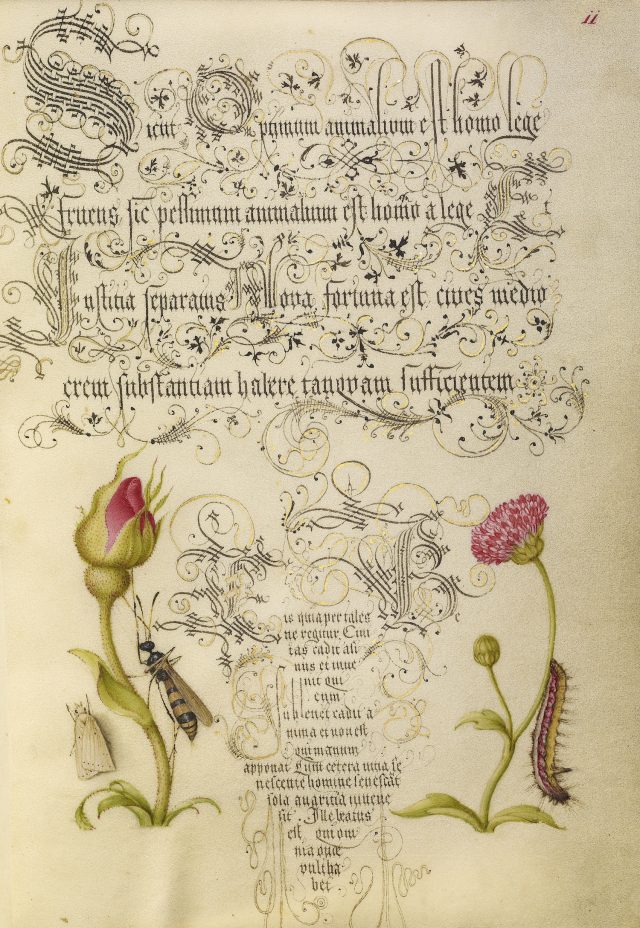 ii
Sicut Optimum animalium est homo lege
fruens sic pessimum animalium est homo a lege Et
Iustitia separatus Nova fortuna est cives medio
crem substantiam habere tanquam sufficientem
is quia per tales
ne regitur. Civi
tas cadit asi
nus et inve
nit qui
eum
sublevet cadit a
nima et non est
qui manum
apponat Cum cetera vitia se
nescente homine senescāt
sola avaritia iuvene
sit. Ille beatus
est qui om
nia quæ
vult ha
bet.